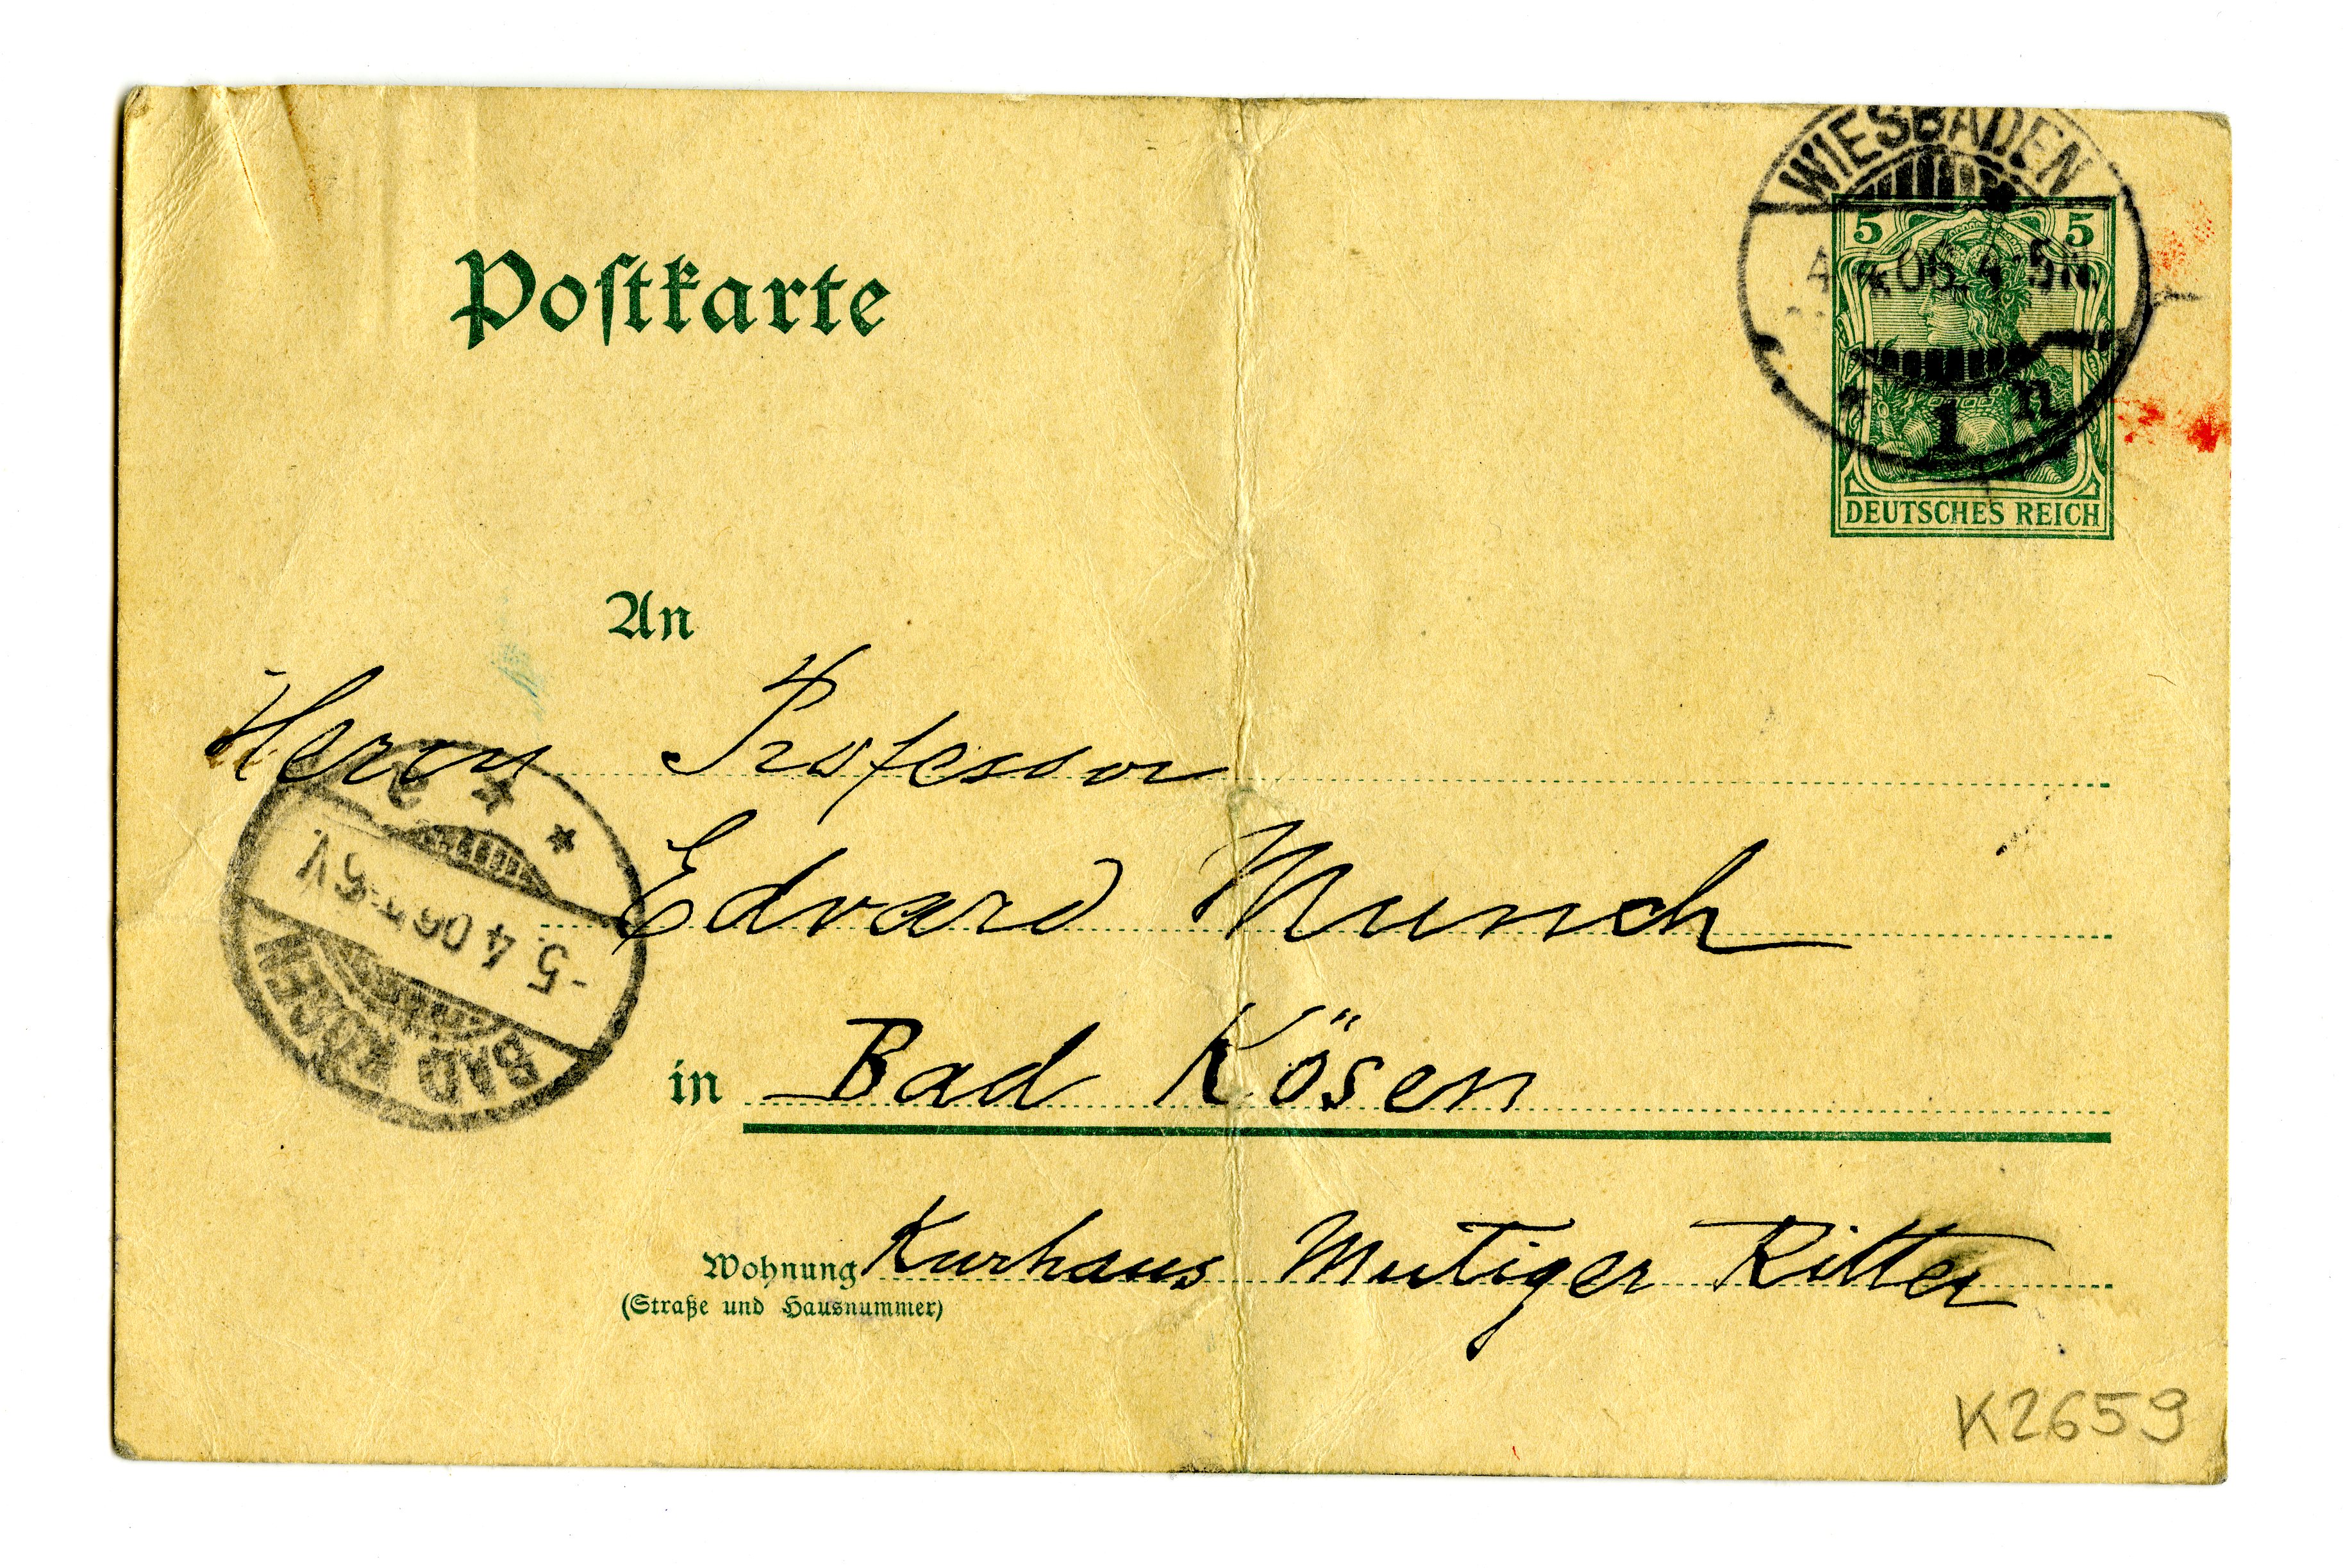 Postkarte
WIESBADEN
4.4.06.4-5N.
* 1 n
5 5
DEUTSCHES REICH
An
Herrn Professor
Edvard Munch
in Bad Kösen
Wohnung Kurhaus Mutiger Ritter
(Straße und Hausnummer)
BAD KÖSEN
-5.4.06 5-6V
* * a
K2659